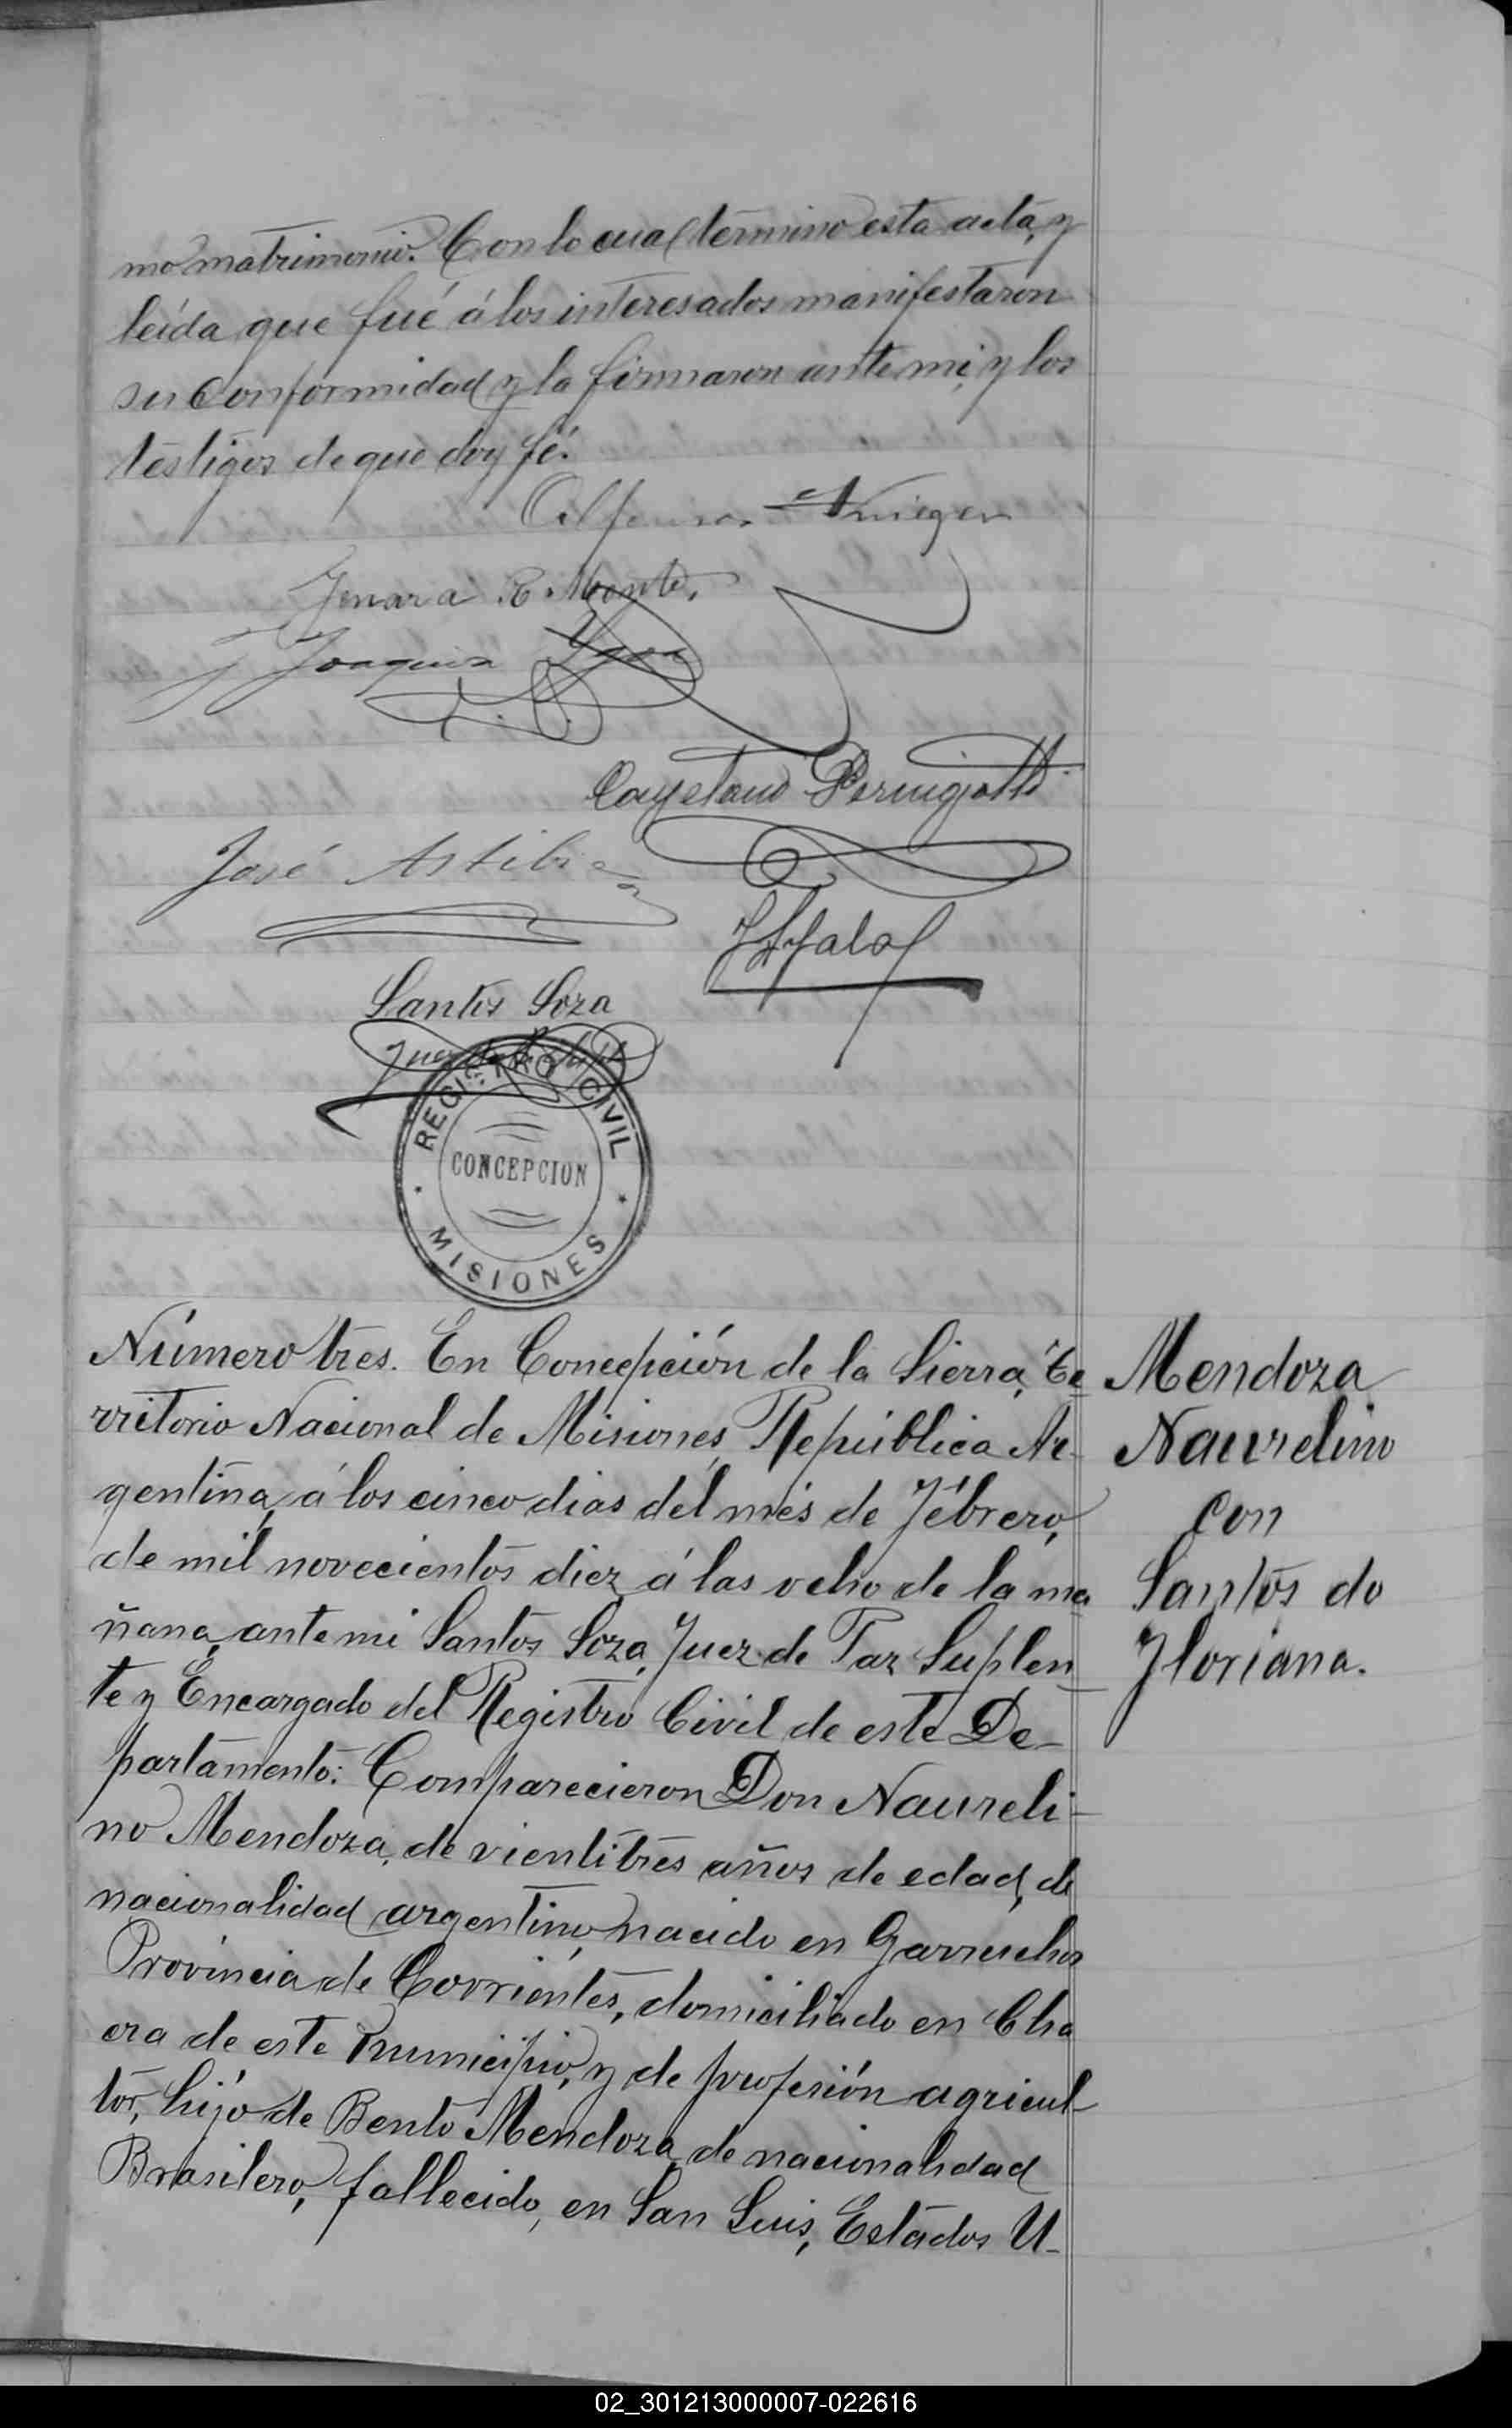 mo matrimonio. Con lo cual termino esta acta, y
leída que fué á los interesados manifestaron
su conformidad y la firmaron ante mi, y los
testigos de que doy fé.
Jenara R.
Joaquin
Cayetano
José
Santos Soza
Juez de Paz Suplte
REGISTRO CIVIL
CONCEPCION
MISIONES
Número tres. En Concepción de la Sierra, Te
rritorio Nacional de Misiones, República Ar-
gentina, á los cinco dias del més de Febrero,
de mil novecientos diez, á las ocho de la ma
ñana, ante mi Santos Soza, Juez de Paz Suplen
te y Encargado del Registro Civil de este De-
partamento: Comparecieron Don Naureli-
no Mendoza, de vientitrés años de edad, de
nacionalidad argentino, nacido en Garruchos
Provincia de Corrientes, domiciliado en Cha
cra de este municipio, y de profesión agricul-
tor, hijo de Bento Mendoza, de nacionalidad
Brasilero, fallecido, en San Luis, Estados U-
Mendoza
Naurelino
con
Santos do
Floriana.
02_301213000007-022616